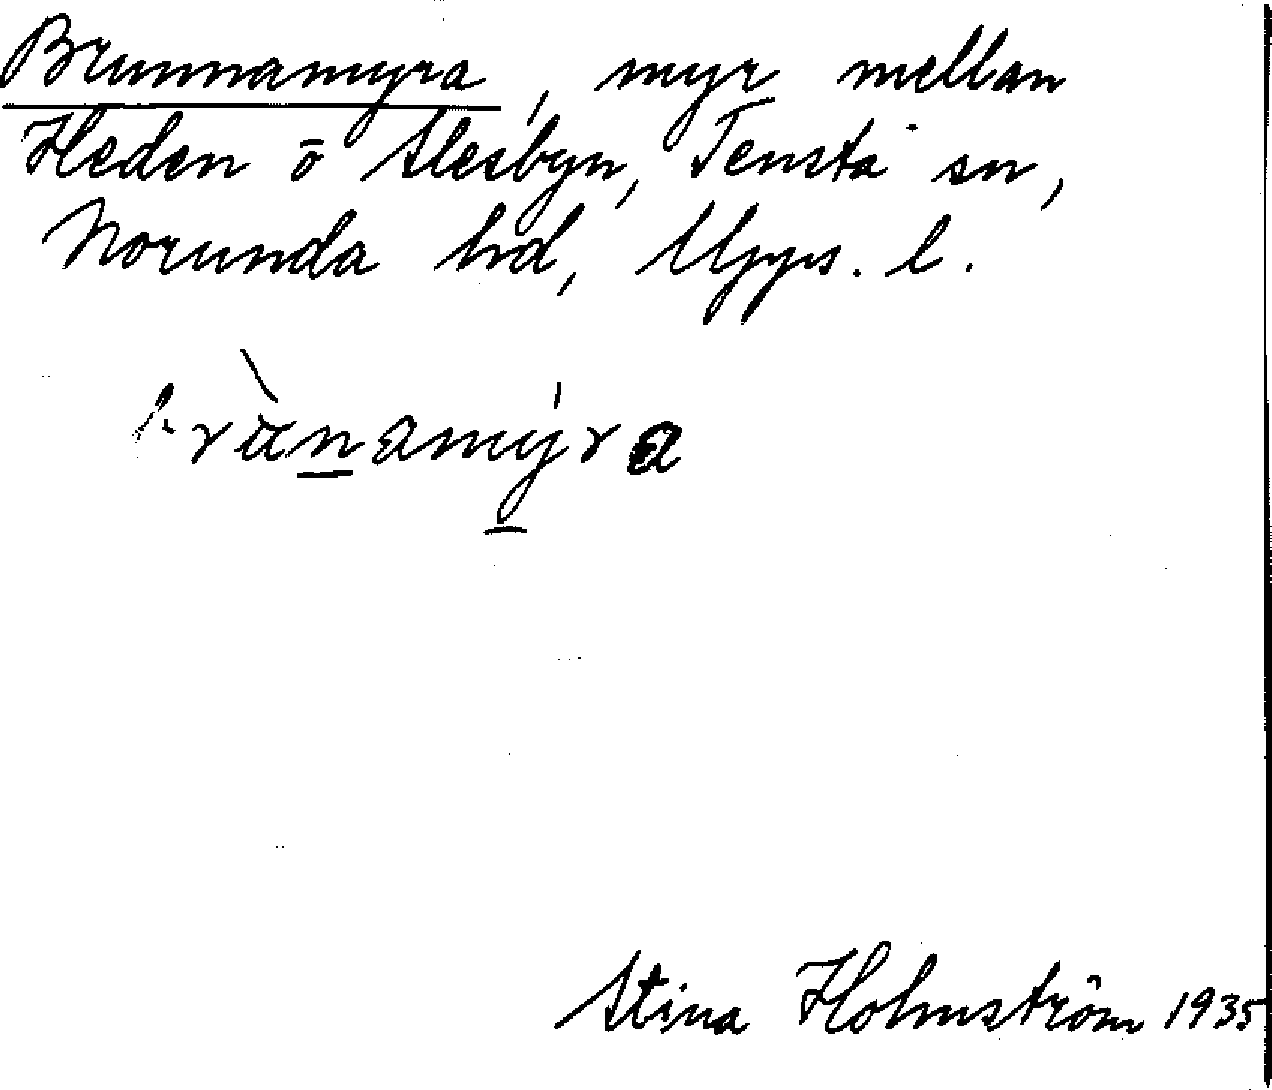 Brunnamyra, myr mellan
Heden ō Slesbyn, Tensta sn,
Norunda hd, Upps. l.
Stina Holmström 1935